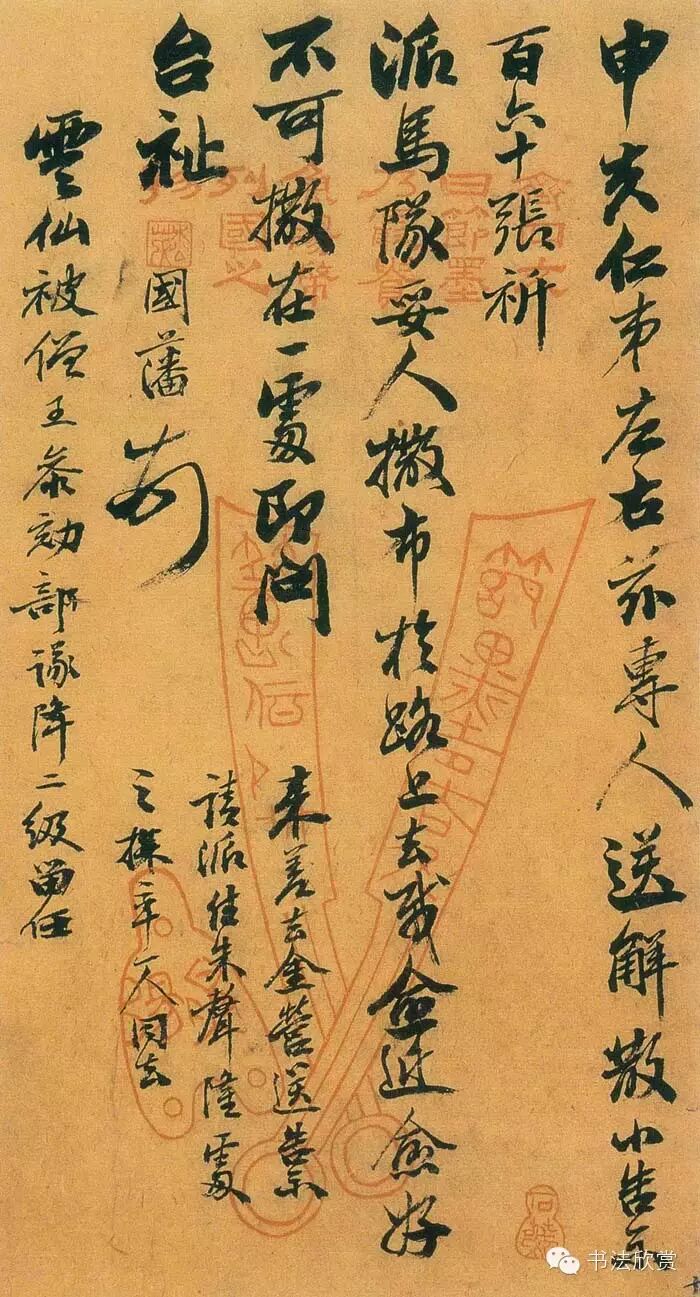 申夫仁弟左右茲專人送解散小告示
百六十張祈
派馬隊妥人撒布於路上去賊愈近愈好
不可撒在一處即問
台祉
國藩
雲仙被僧王叅劾部議降二級留任
來善去金營送告示
請派往朱聲隆處
之探卒一人同去
書法欣赏